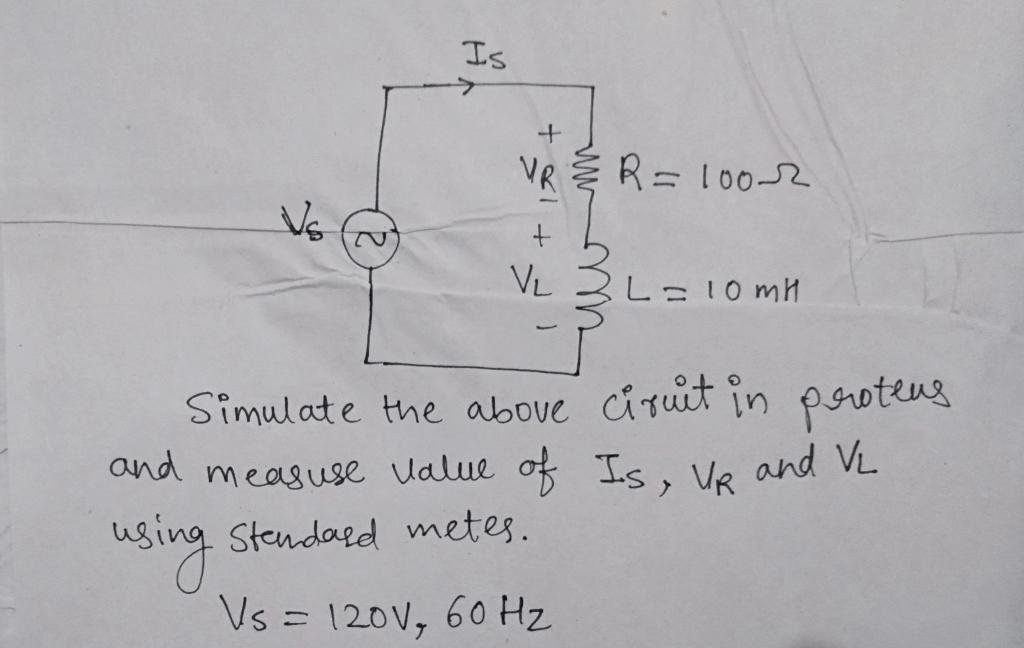 Is
+
VR
R = 100Ω
-
Vs
+
VL
L = 10 mH
-
Simulate the above ciruit in proteus
and measure value of Is, VR and VL
using standard meter.
Vs = 120V, 60 Hz